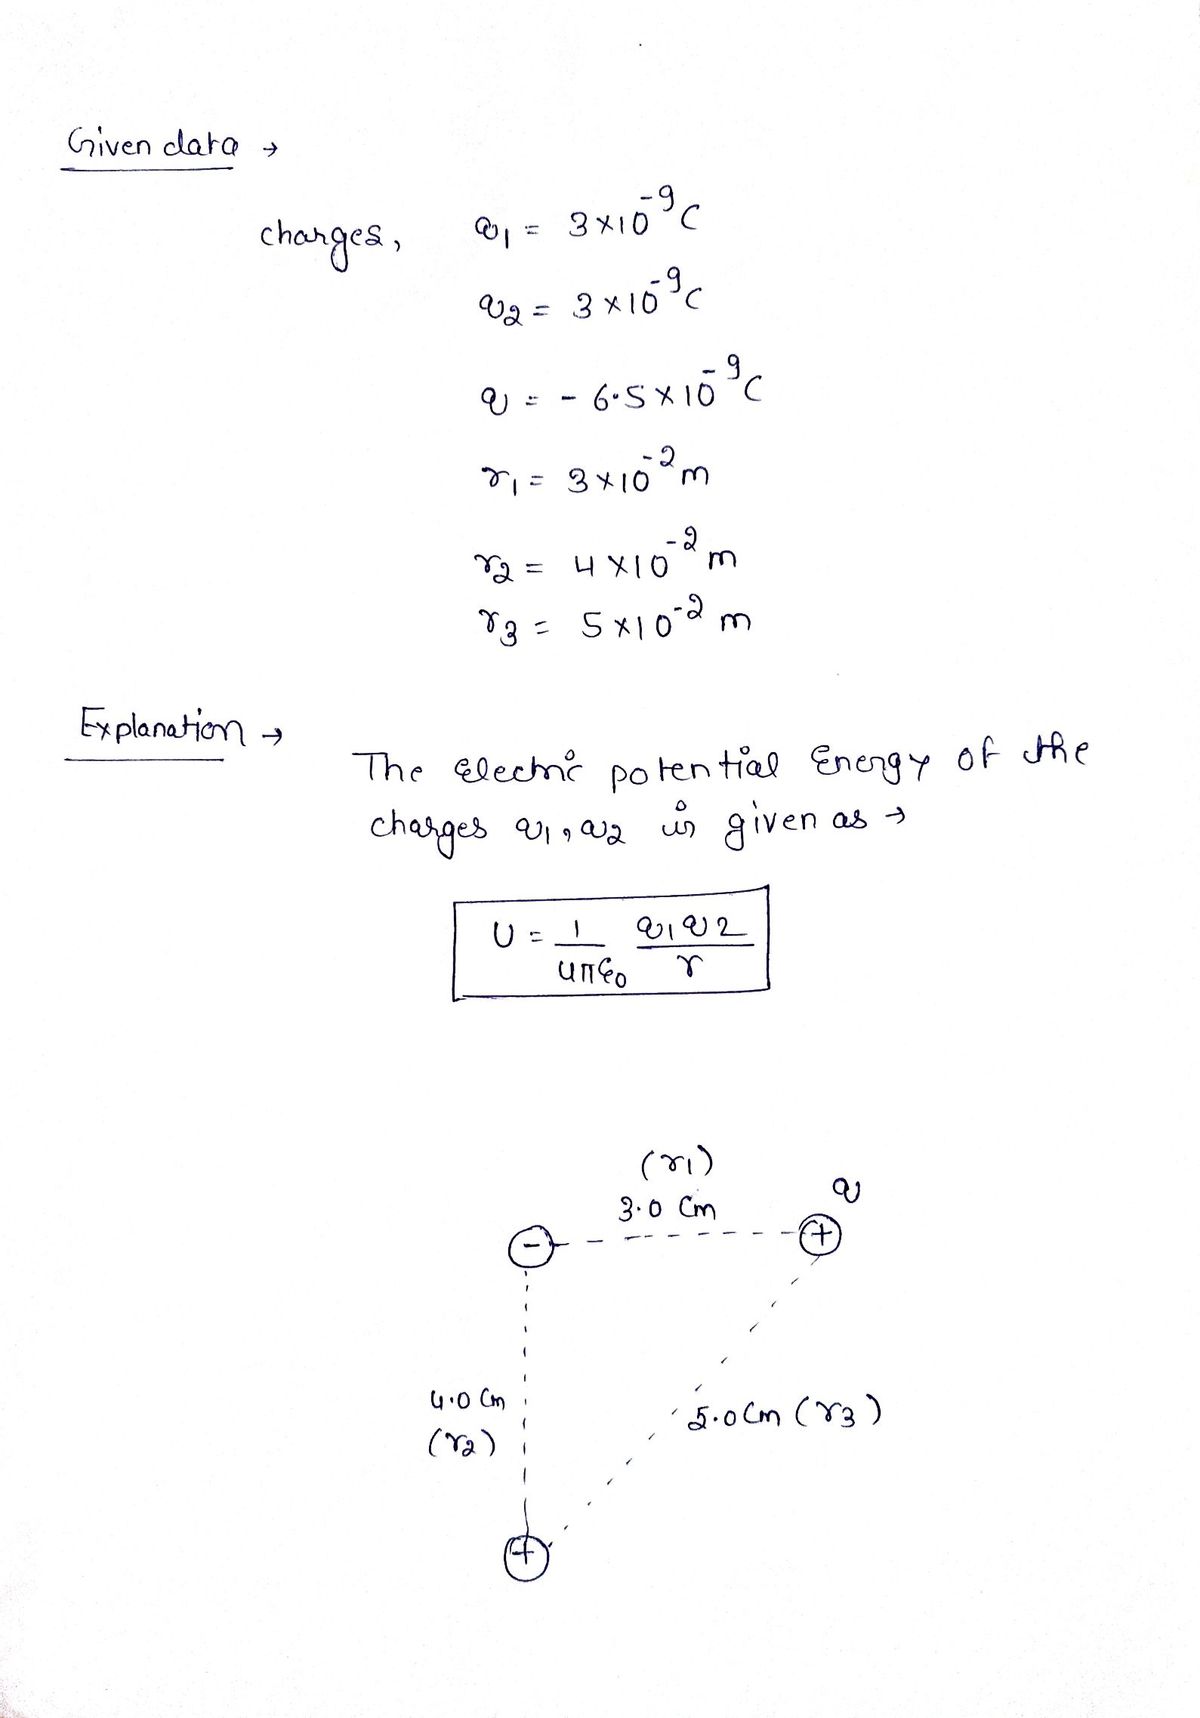 Given data →
charges, q1 = 3×10^-9 C
q2 = 3×10^-9 C
q = - 6.5×10^-9 C
r1 = 3×10^-2 m
r2 = 4×10^-2 m
r3 = 5×10^-2 m
Explanation →
The Electric potential Energy of the
charges q1, q2 is given as →
U = 1/4πϵ0 q1q2/r
(r1)
3.0 Cm
q
-
+
4.0 Cm
(r2)
5.0Cm (r3)
+